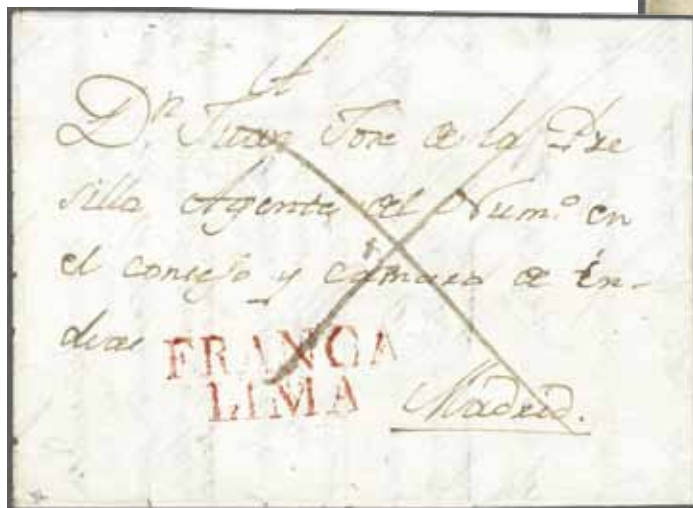 A
Dn Juan Jose de la Pre
silla Agente del Numo en
el consejo y camara de in-
dias
FRANCA
LIMA
Madrid.